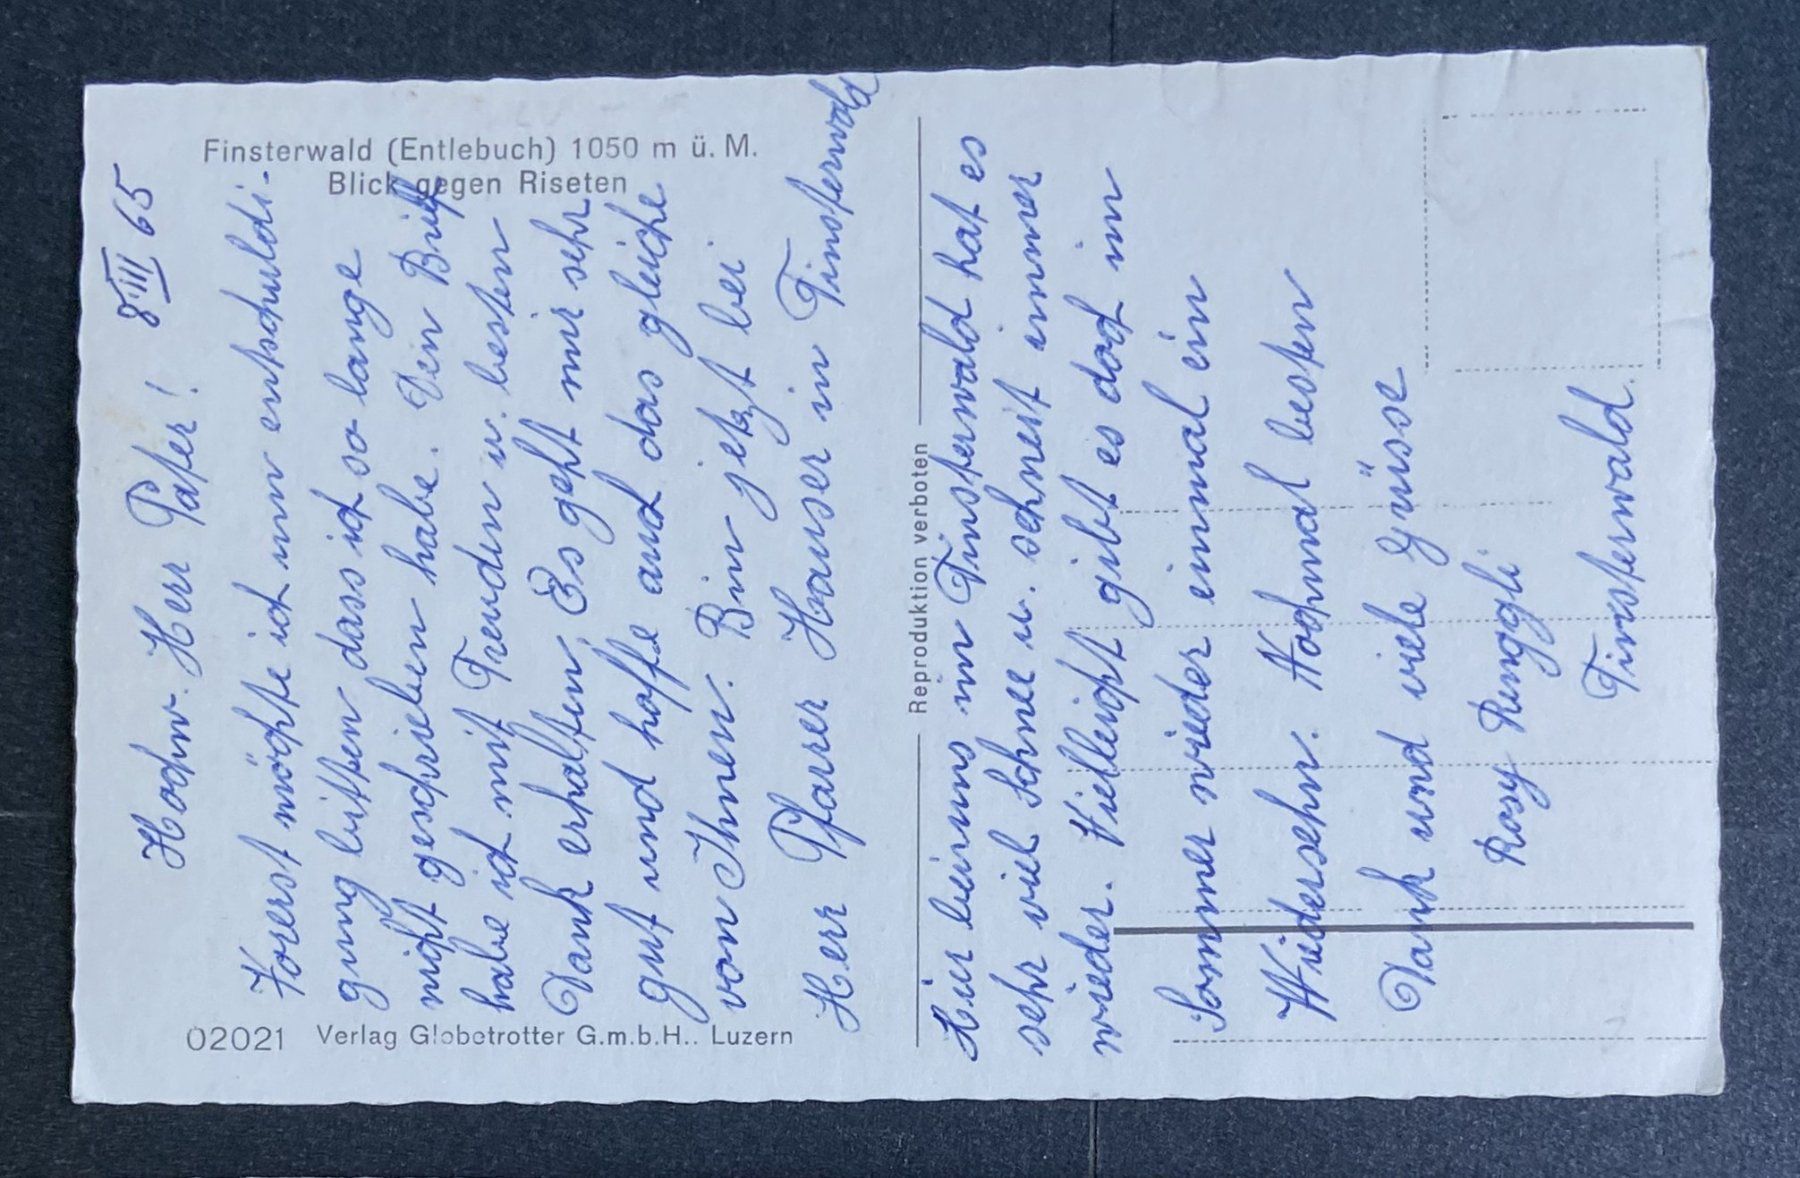 Finsterwald (Entlebuch) 1050 m ü. M.
Blick gegen Riseten
8.III 65
Hochw. Herr Pater!
Vorerst möchte ich um entschuldi-
gung bitten dass ich so lange
nicht geschrieben habe. Dein Brief
habe ich mit Freuden u. besten
Dank erhalten. Es geht mir sehr
gut und hoffe auch das gleiche
von Ihnen. Bin jetzt bei
Herr Pfarer Hauser in Finsterwald
02021 Verlag Globetrotter G.m.b.H.. Luzern
Reproduktion verboten
Hier beiuns im Finsterwald hat es
sehr viel Schnee u. schneit immer
wieder. Vielleicht gibt es doch im
Sommer wieder einmal ein
Wiedersehn. Nochmal besten
Dank und viele Grüsse
Rosy Renggli
Finsterwald.